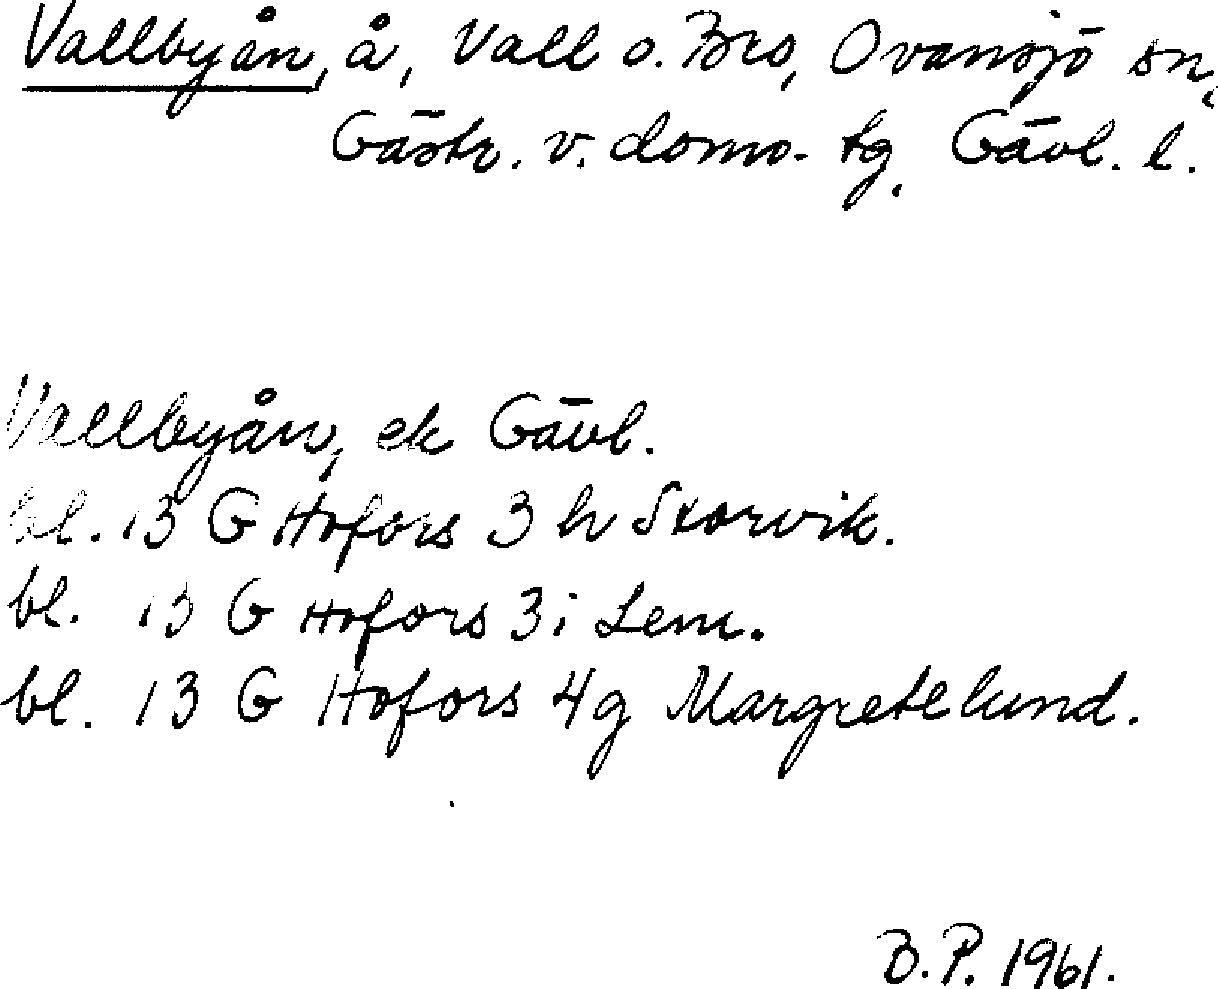 Vallbyån, å, Vall o. Bro, Ovansjö sn,
Gästr. v. doms. tg. Gävl. l.
Vallbyån, ek Gävl.
bl. 13 G Hofors 3 h Storvik.
bl. 13 G Hofors 3 i Lem.
bl. 13 G Hofors 4g Margretelund.
B.P. 1961.